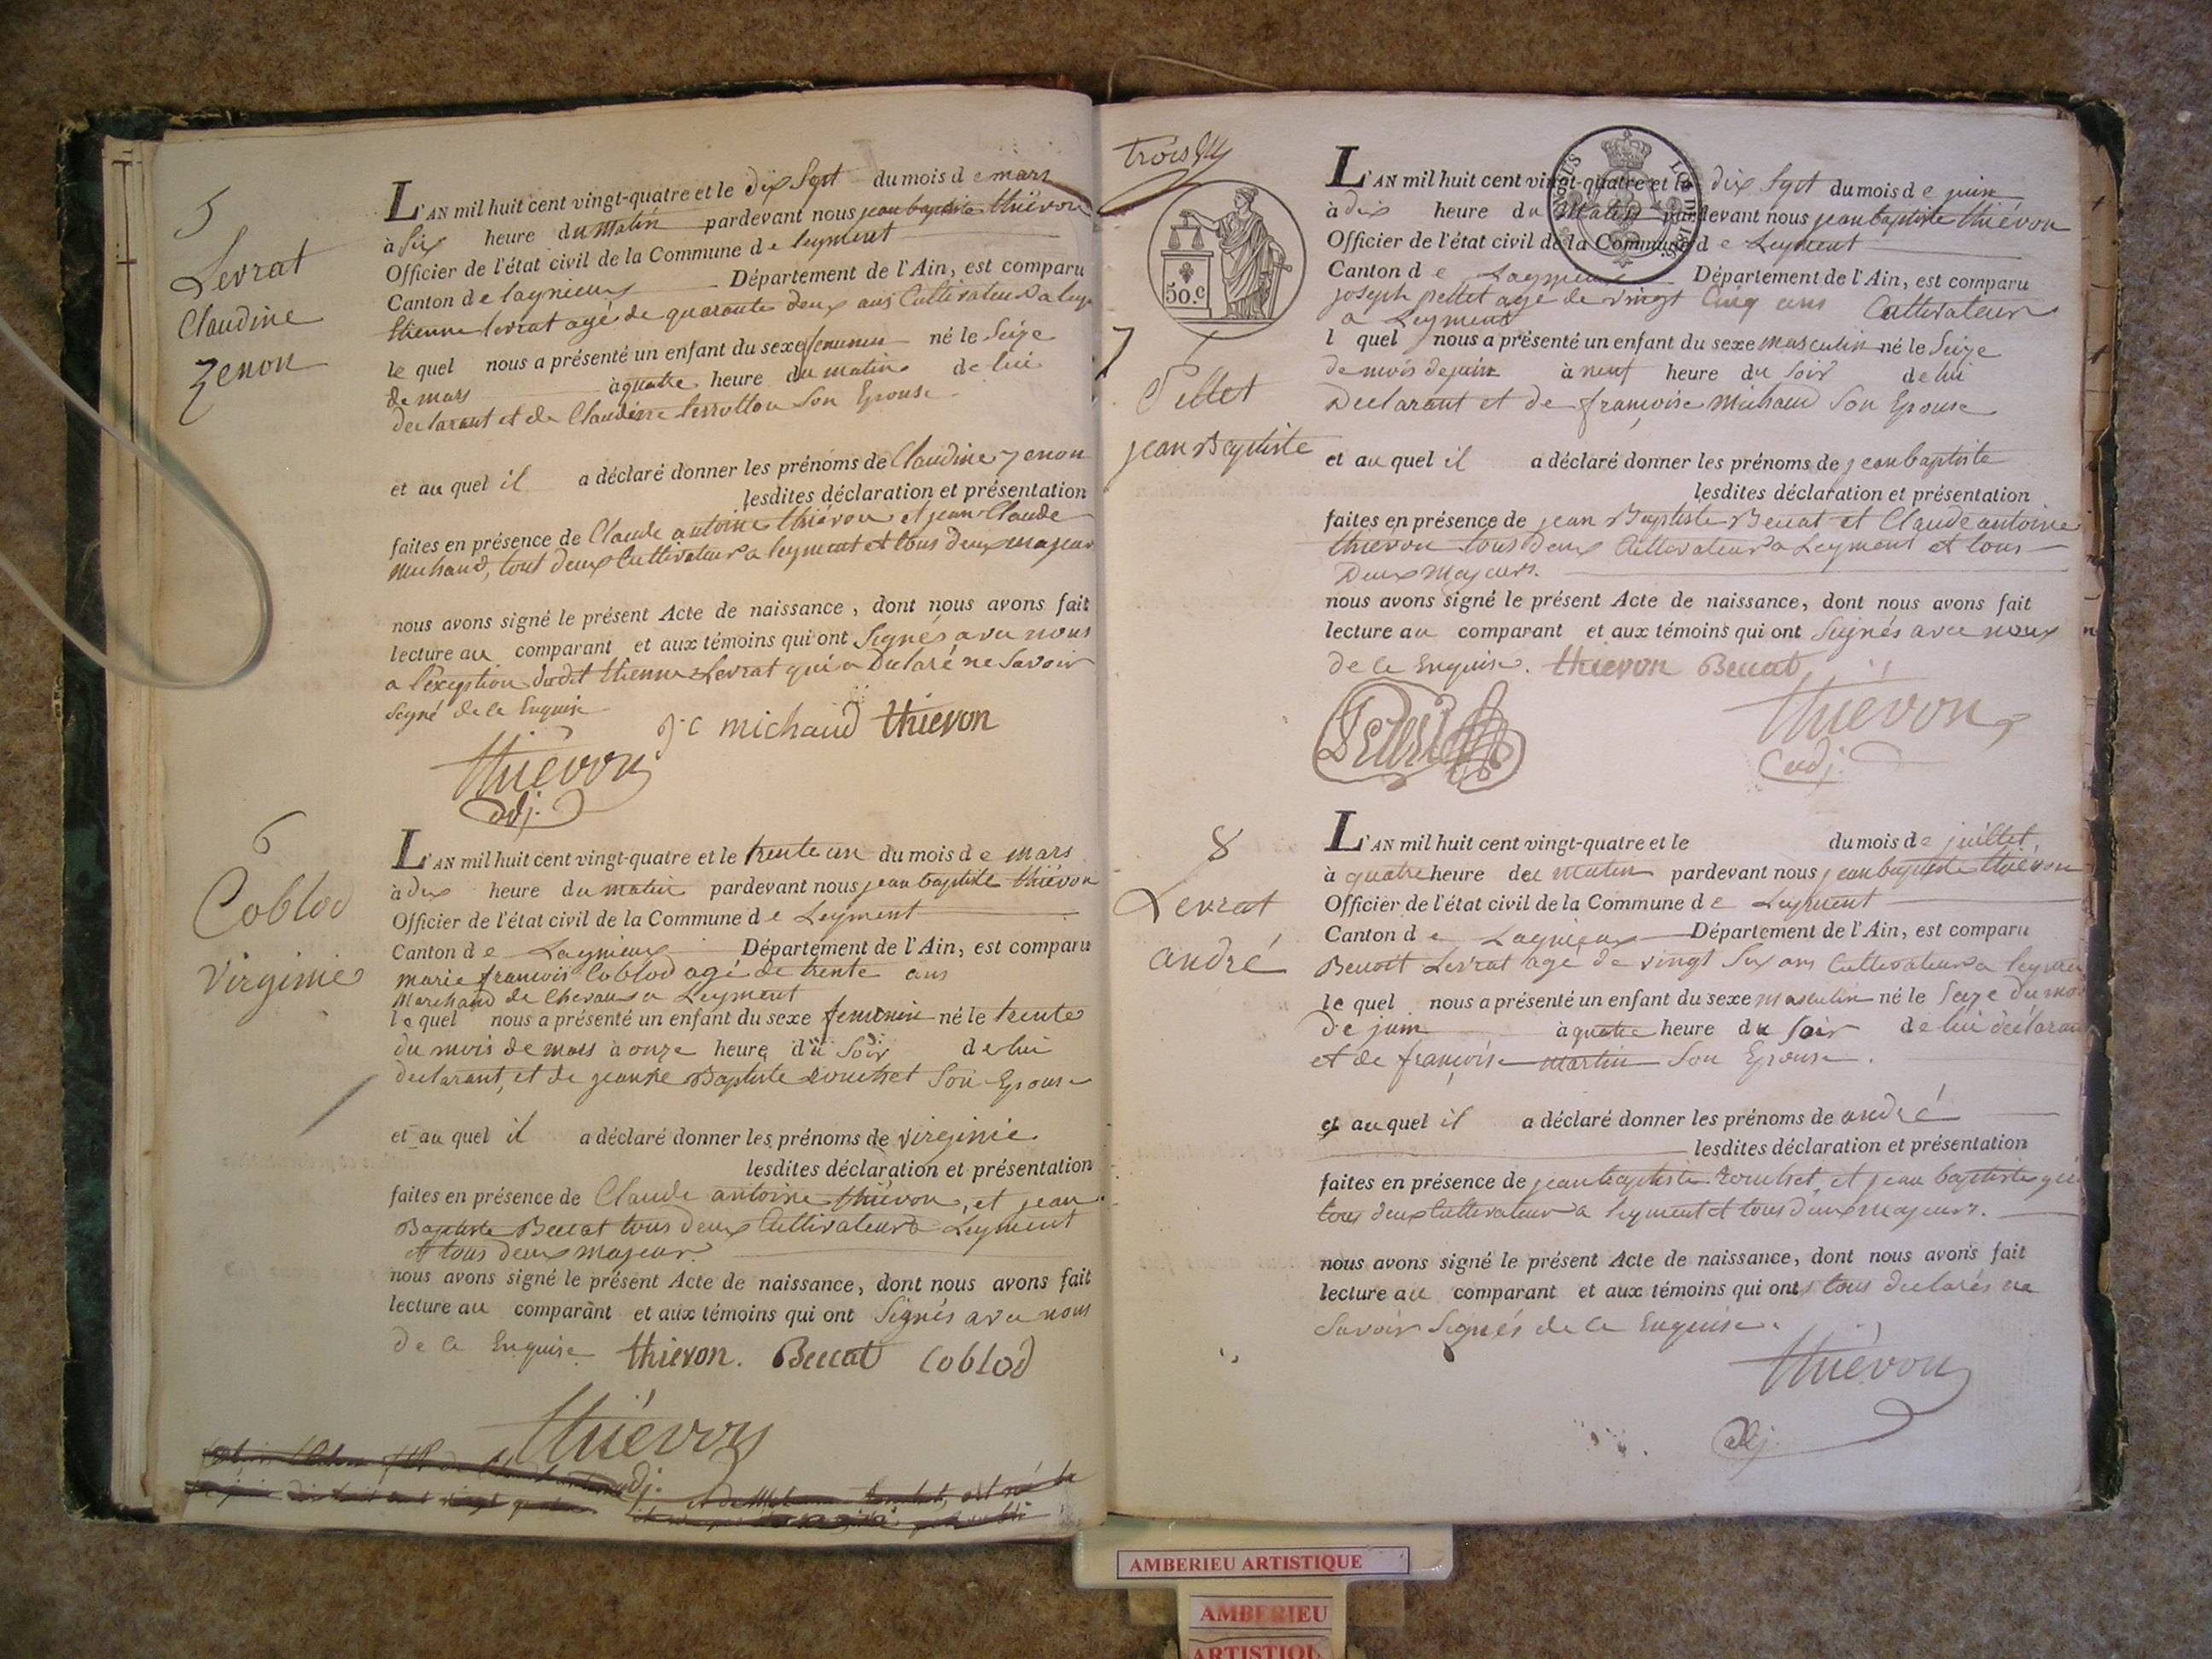 5
Levrat
Claudine
Zenon
L'AN mil huit cent vingt-quatre et le dix Sept du mois de mars
à Six heure du matin pardevant nous jean baptiste thiévon
Officier de l'état civil de la Commune de leyment
Canton de lagnieux Département de l'Ain, est comparu
Etienne levrat agé de quarante deux ans Cultivateur a
le quel nous a présenté un enfant du sexe né le Seize
de mars à quatre heure du matin de lui
declarant et de Claudine Son Epouse
et au quel il a déclaré donner les prénoms de Claudine zenon
lesdites déclaration et présentation
faites en présence de Claude antoine thiévon et jean Claude
Michaud, tout deux Cultivateur a leyment et tous deux majeur
nous avons signé le présent Acte de naissance, dont nous avons fait
lecture au comparant et aux témoins qui ont Signés avec nous
a l'exception dudit Etienne Levrat qui a Declaré ne Savoir
Signé de ce Enquise
j c michaud thievon
thiévon
adj.
6
Coblod
Virginie
L'AN mil huit cent vingt-quatre et le trente un du mois de mars
à dix heure du matin pardevant nous jean baptiste thiévon
Officier de l'état civil de la Commune de Leyment
Canton de Lagnieux Département de l'Ain, est comparu
marie francois Coblod agé de trente ans
Marchand de Chevaux a Leyment
le quel nous a présenté un enfant du sexe feminin né le trente
du mois de mars à onze heure du Soir de lui
declarant, et de jeanne Baptiste Son Epouse
et au quel il a déclaré donner les prénoms de virginie
lesdites déclaration et présentation
faites en présence de Claude antoine thiévon, et jean
Baptiste Beccat tous deux Cultivateur a Leyment
et tous deux majeur
nous avons signé le présent Acte de naissance, dont nous avons fait
lecture au comparant et aux témoins qui ont Signés avec nous
de ce Enquise thievon. Beccat Coblod
thiévon
adj.
trois
50.c
LUDVS
7
Pellet
jean Baptiste
L'AN mil huit cent vingt-quatre et le dix Sept du mois de juin
à dix heure du Matin pardevant nous jean baptiste thiévon
Officier de l'état civil de la Commune de Leyment
Canton de Lagnieux Département de l'Ain, est comparu
joseph pellet agé de vingt Cinq ans Cultivateur
a Leyment
l quel nous a présenté un enfant du sexe masculin né le Seize
de mois de juin à neuf heure du Soir de lui
Declarant et de françoise Michaud Son Epouse
et au quel il a déclaré donner les prénoms de jean baptiste
lesdites déclaration et présentation
faites en présence de jean Baptiste Beccat et Claude antoine
thievon tous deux Cultivateur a Leyment et tous
Deux Majeurs.
nous avons signé le présent Acte de naissance, dont nous avons fait
lecture au comparant et aux témoins qui ont Signés avec nous
de ce Enquise. thievon Beccat
Pellet
thiévon
adj.
8
Levrat
andré
L'AN mil huit cent vingt-quatre et le du mois de juillet
à quatre heure du matin pardevant nous jean baptiste thiévon
Officier de l'état civil de la Commune de Leyment
Canton de Lagnieux Département de l'Ain, est comparu
Benoit Levrat agé de vingt Six ans Cultivateur a
le quel nous a présenté un enfant du sexe masculin né le Seize du
de juin à quatre heure du Soir de lui
et de françoise martin Son Epouse.
et au quel il a déclaré donner les prénoms de andré
lesdites déclaration et présentation
faites en présence de jean baptiste et jean baptiste
tous deux Cultivateur a leyment et tous deux majeurs.
nous avons signé le présent Acte de naissance, dont nous avons fait
lecture au comparant et aux témoins qui ont tous declarés ne
Savoir Signés de ce Enquise.
thiévon
adj.
AMBERIEU ARTISTIQUE
AMBERIEU